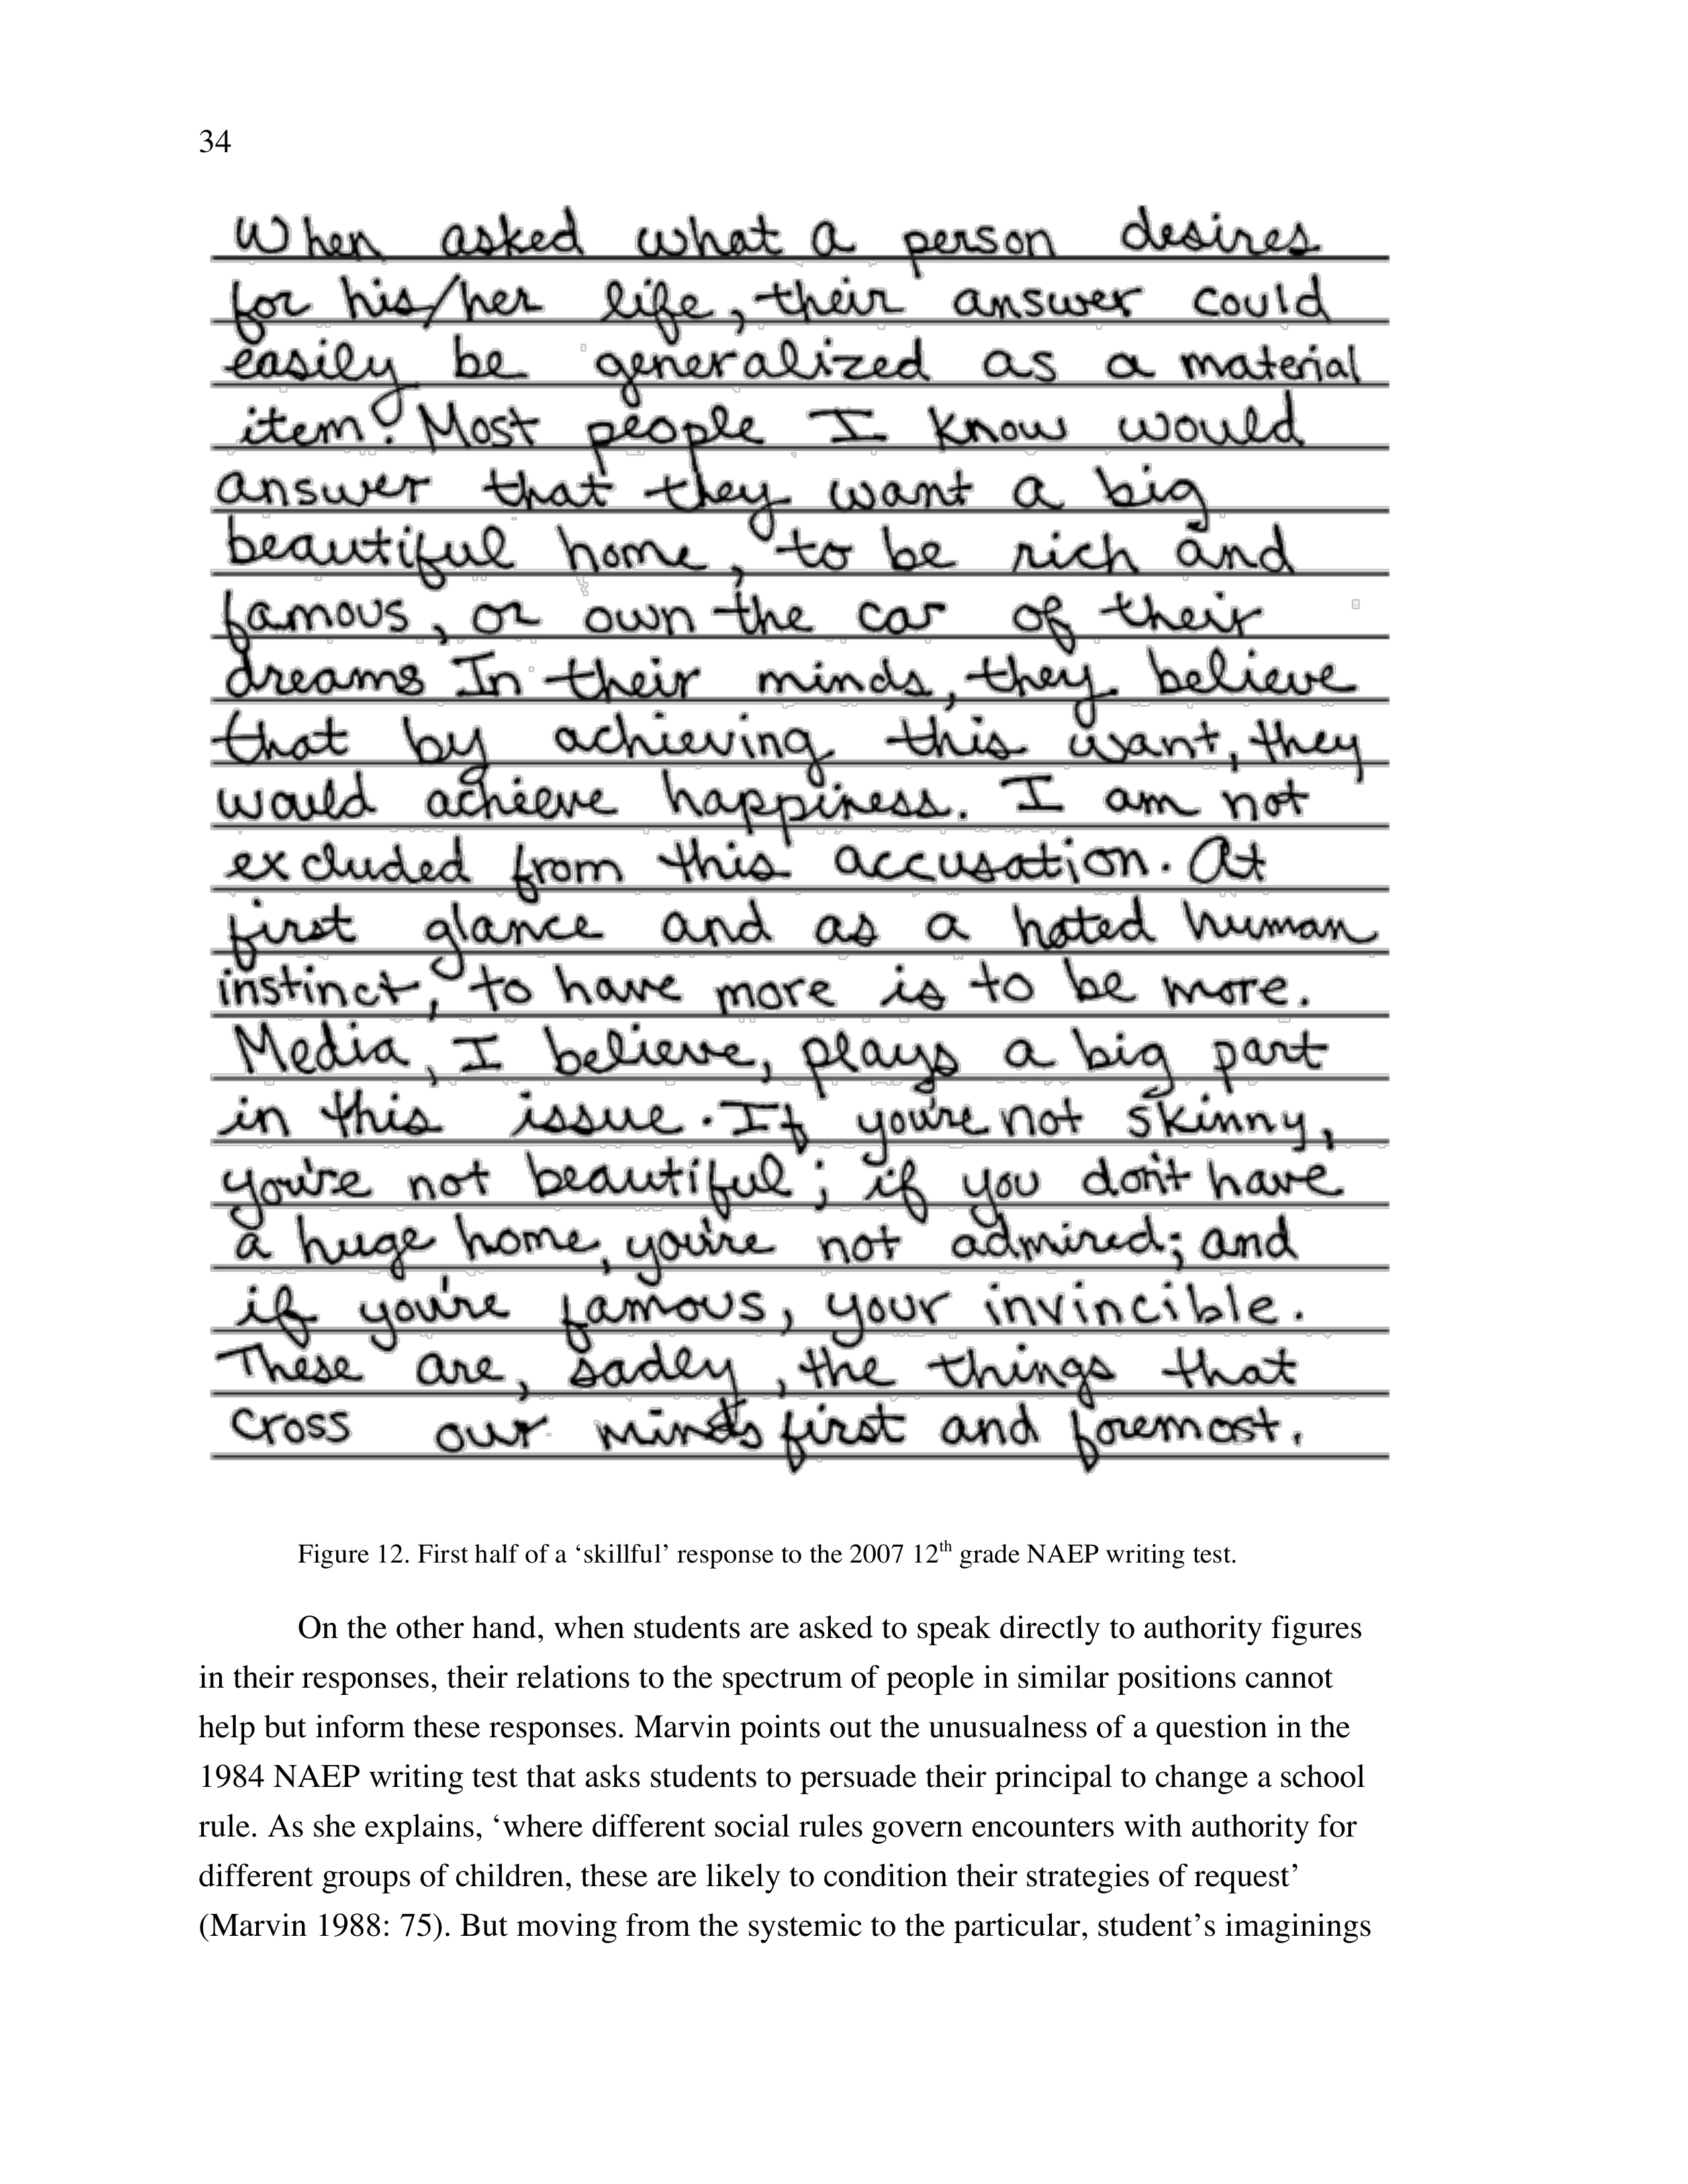 34
When asked what a person desires
for his/her life, their answer could
easily be generalized as a material
item. Most people I know would
answer that they want a big
beautiful home, to be rich and
famous, or own the car of their
dreams In their minds, they believe
that by achieving this want, they
would achieve happiness. I am not
excluded from this accusation. At
first glance and as a hated human
instinct, to have more is to be more.
Media, I believe, plays a big part
in this issue. If you're not skinny,
you're not beautiful; if you don't have
a huge home, you're not admired; and
if you're famous, your invincible.
These are, sadly, the things that
cross our minds first and foremost.
Figure 12. First half of a ‘skillful’ response to the 2007 12th grade NAEP writing test.
On the other hand, when students are asked to speak directly to authority figures
in their responses, their relations to the spectrum of people in similar positions cannot
help but inform these responses. Marvin points out the unusualness of a question in the
1984 NAEP writing test that asks students to persuade their principal to change a school
rule. As she explains, ‘where different social rules govern encounters with authority for
different groups of children, these are likely to condition their strategies of request’
(Marvin 1988: 75). But moving from the systemic to the particular, student’s imaginings